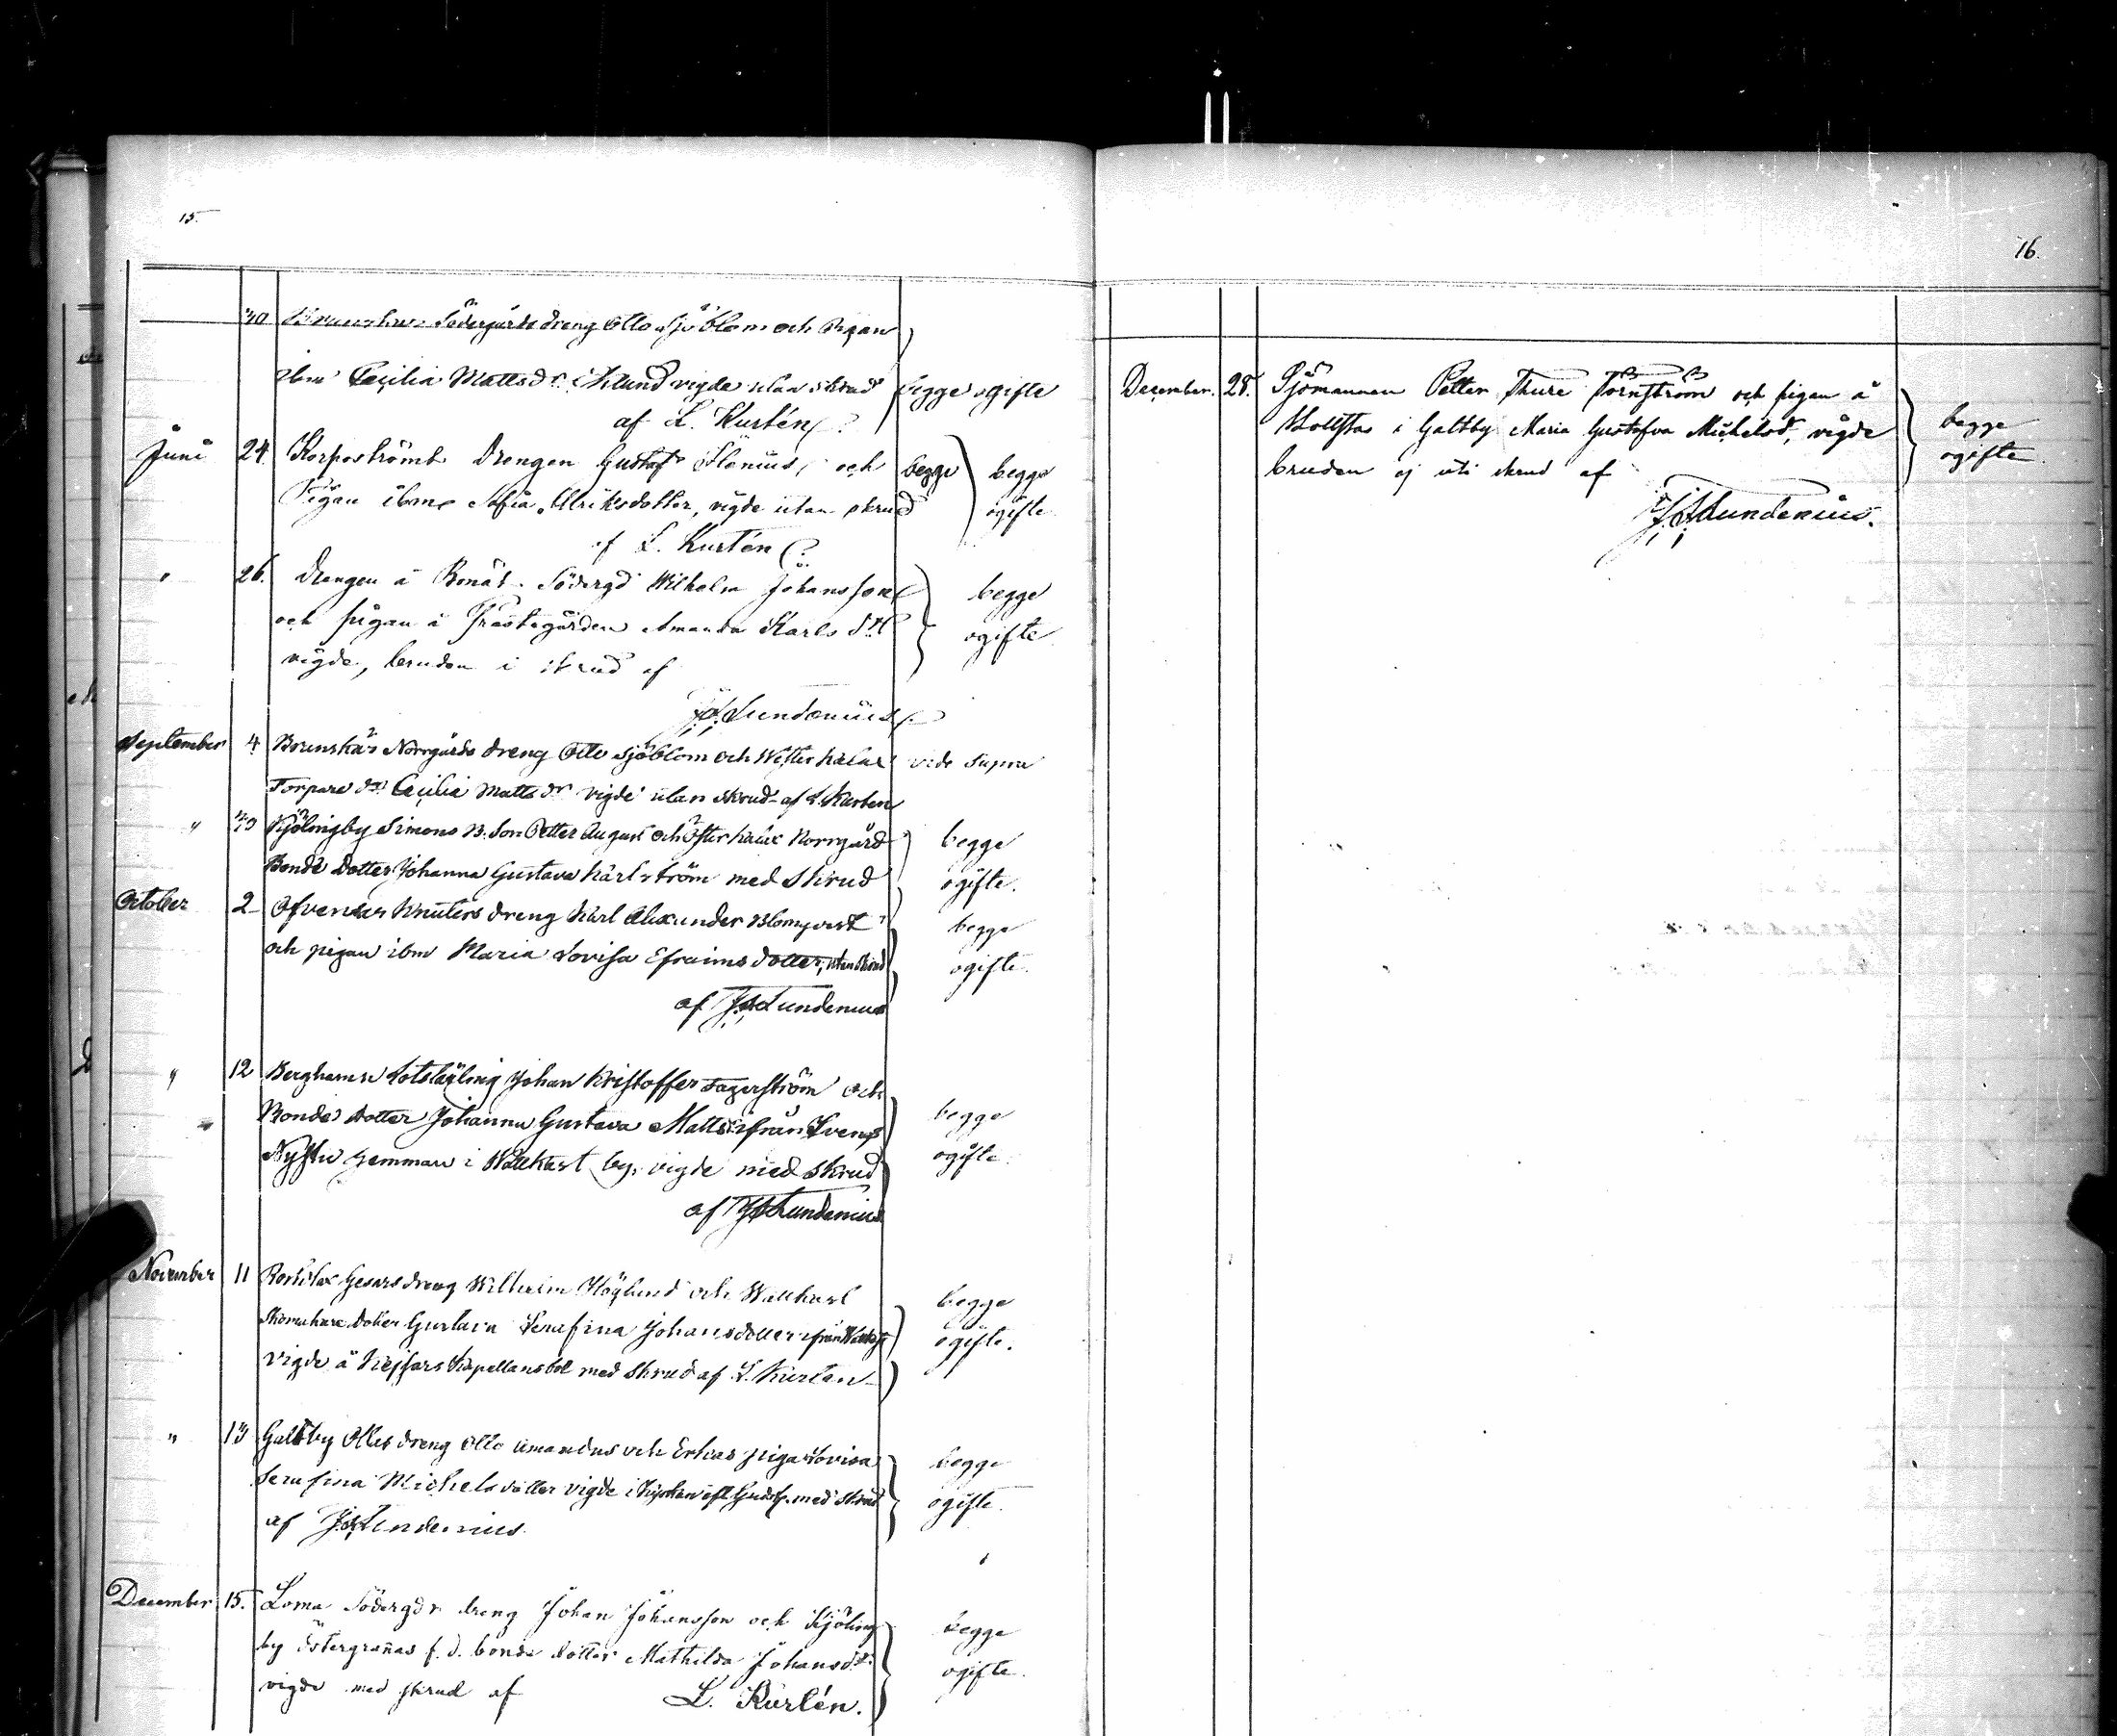 15.
30 Brunskär Södergårds dreng Otto Sjöblom och Pigan
ibm Cecilia Mattsdr Eklund vigde utan skrud begge ogifte
af L. Kurtén
Juni 24. Korpoströmb drengen Gustaf och begge begge
Pigan ibm Sofia Ulriksdotter, vigde utan skrud ogifte
af L. Kurtén
" 26. Drengen å Södergd Wilhelm Johansson begge
och pigan i Prästegården Amanda Karlsdtr ogifte
vigde, bruden i skrud af
J. A. Lundenius
September 4 Brunskär Norrgårds dreng Otto Sjöblom och Westerhalar vide supra
Torpare dr Cecilia Mattsdr vigde utan skrud af L. Kurten
" 30 Kjölingby Simons B. Son Petter August och Österhalar Norrgård begge
Bonde dotter Johanna Gustava Karlström med Skrud ogifte.
October 2 Ofvensor Knuters dreng Karl Alexander Blomqvist begge
och pigan ibm Maria Lovisa Efraimsdotter, utan skrud ogifte.
af J. A. Lundenius
" 12 Berghamn Lotslärling Johan Kristoffer Fagerström och
Bonde dotter Johanna Gustava Mattsdr från Svens begge
hemman i Wattkast by, vigde med skrud ogifte.
af J. A. Lundenius
November 11 Gesars dreng Wilhelm Höglund och Wattkast begge
Skomakare dotter Gustava Serafina Johansdotter från Wattkast ogifte.
vigde å Kapellansbol med skrud af L. Kurten
" 13 Galtby Olles dreng Otto Amandus och Erkas piga Lovisa begge
Serafina Michelsdotter vigde i Kyrkan eft Gudstj. med skrud ogifte.
af J. A. Lundenius
December 15. Loma Södergds dreng Johan Johansson och Kjöling begge
by Östergranas f.d. bonde dotter Mathilda Johansdtr. ogifte.
vigde med skrud af L. Kurtén.
16.
December. 28. Sjömannen Petter Thure Törnström och pigan å
i Galtby Maria Gustafva Michelsd, vigde begge
bruden ej uti skrud af ogifte
J. A. Lundenius.